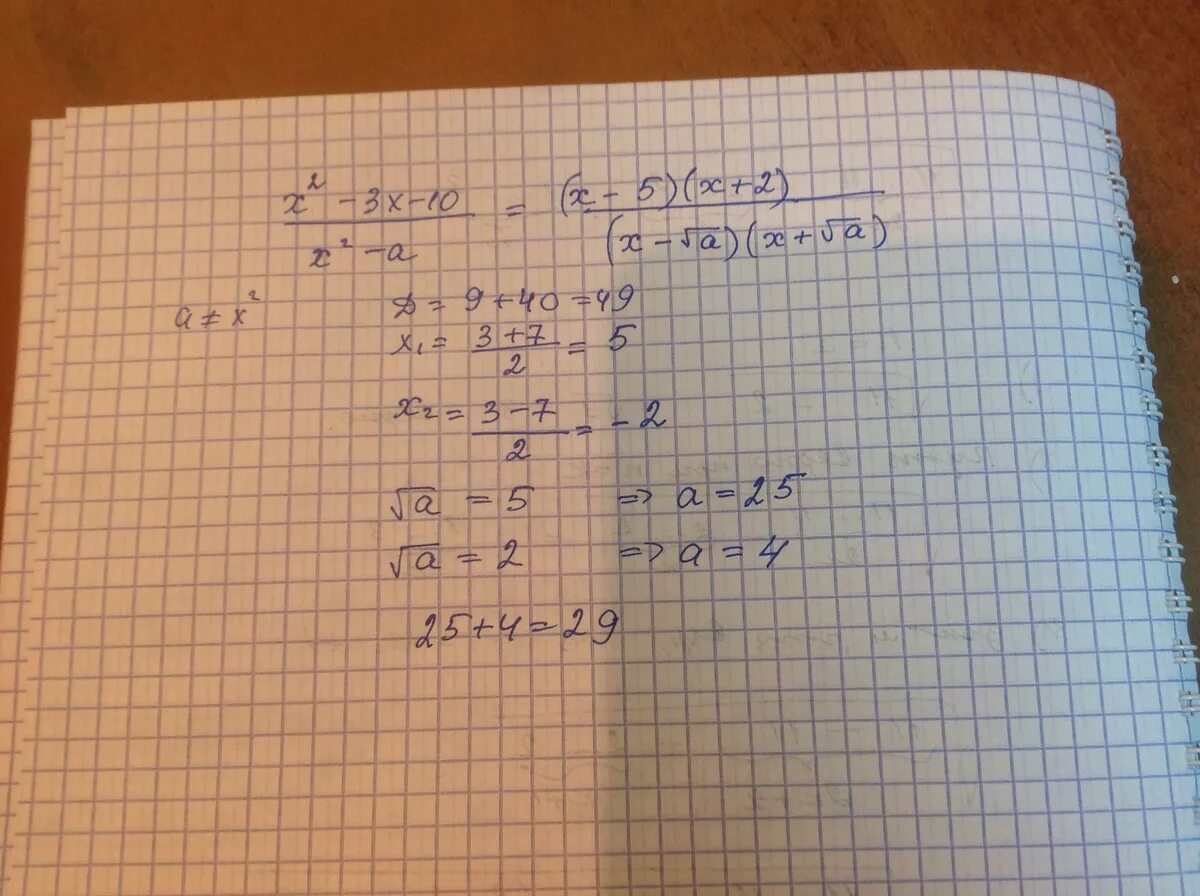 x² - 3x - 10 / x² - a = (x - 5)(x + 2) / (x - √a)(x + √a)
a ≠ x²
D = 9 + 40 = 49
x₁ = 3 + 7 / 2 = 5
x₂ = 3 - 7 / 2 = - 2
√a = 5 => a = 25
√a = 2 => a = 4
25 + 4 = 29